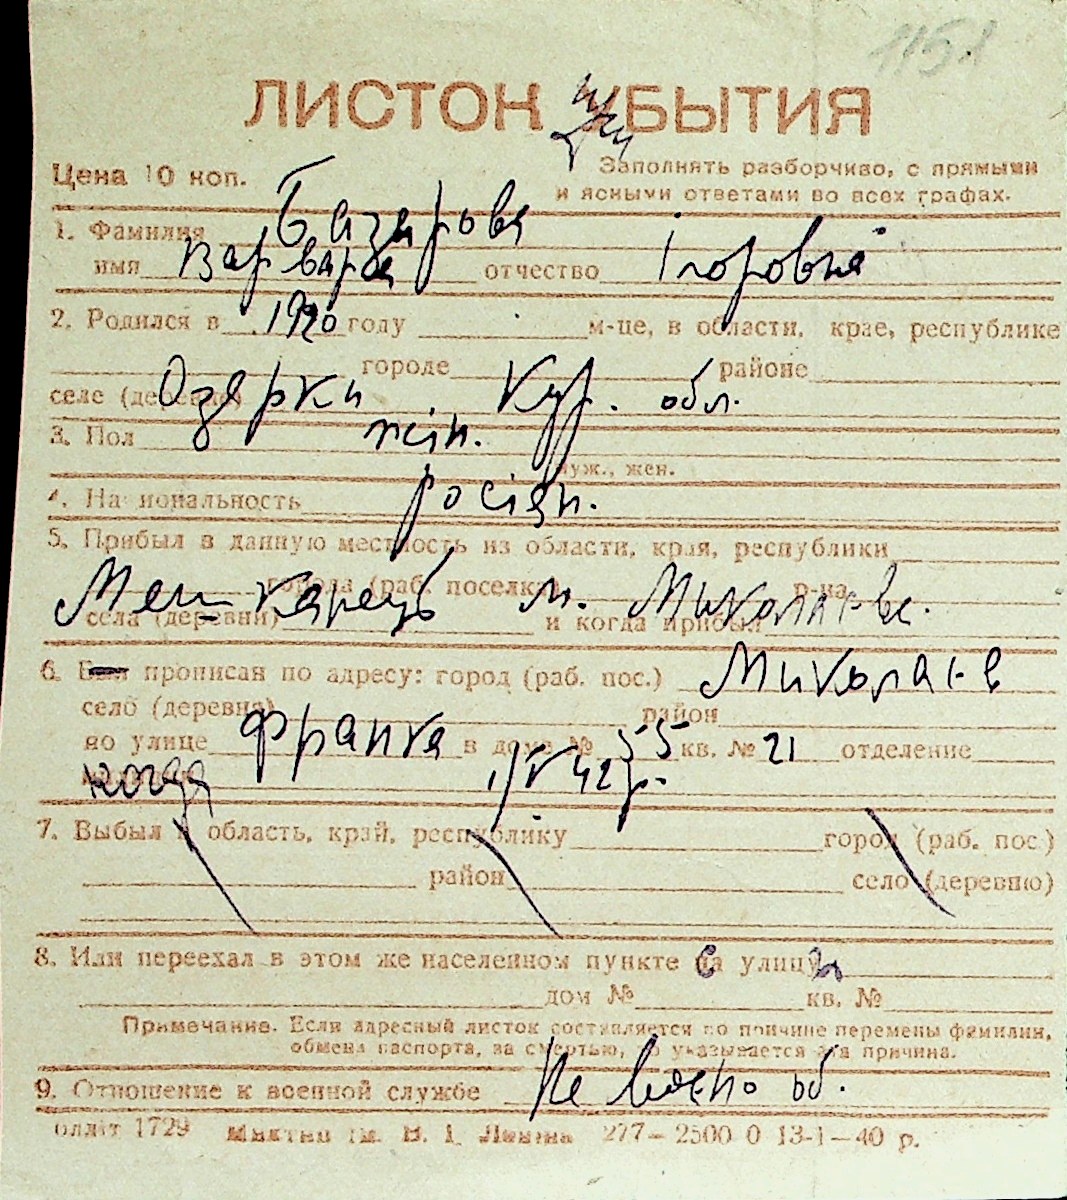 1151
ЛИСТОК УБЫТИЯ
при
Цена 10 коп.
Заполнять разборчиво, с прямыми
и ясными ответами во всех графах.
1. Фамилия Базарова
имя Варвара отчество Ігоровна
2. Родился в 1920 году м-це, в области, крае, республике
городе районе
селе (деревне) Озерки Кур. обл.
3. Пол жін.
муж., жен.
4. Национальность росіян.
5. Прибыл в данную местность из области, края, республики
города (раб. поселка) р-на
Мешканець м. Миколаєве.
села (деревни) и когда прибыл
6. Был прописан по адресу: город (раб. пос.) Миколаєв
село (деревня) район
по улице Франка в доме № 55 кв. № 21 отделение
когда 1/V 42 р.
7. Выбыл в область, край, республику город (раб. пос.)
район село (деревню)
8. Или переехал в этом же населенном пункте на улицу
дом № кв. №
Примечание. Если адресный листок составляется по причине перемены фамилии,
обмена паспорта, за смертью, то указывается эта причина.
9. Отношение к военной службе Не воєно об.
1729 277—2500 0 13-1—40 р.